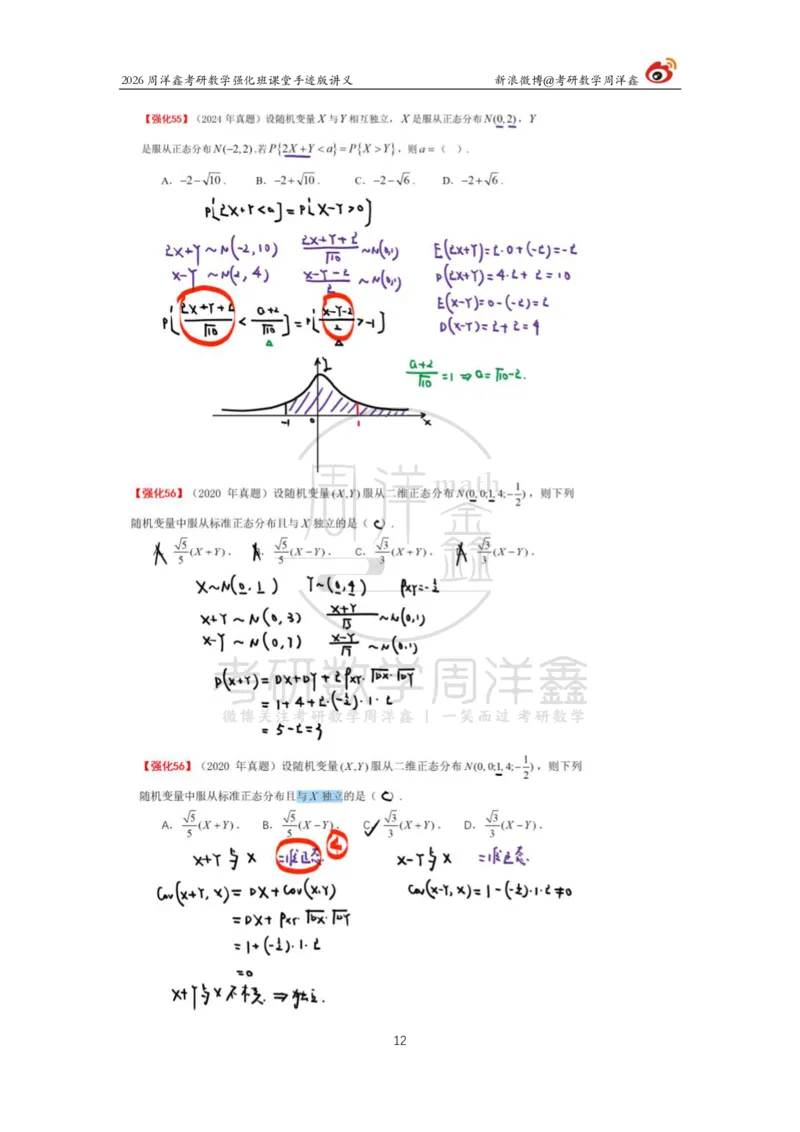 2026 周洋鑫考研数学强化班课堂手迹版讲义 新浪微博@考研数学周洋鑫
【强化55】（2024 年真题）设随机变量 X 与 Y 相互独立，X 是服从正态分布 N(0,2)，Y
是服从正态分布 N(−2,2).若 P{2X+Y<a}=P{X>Y}，则 a=（ ）.
A．−2−√10． B．−2+√10． C．−2−√6． D．−2+√6．
P{2X+Y<a}=P{X-Y>0}
2X+Y~N(-2,10) (2X+Y+2)/√10 ~N(0,1) E(2X+Y)=2·0+(-2)=-2
X-Y ~N(2,4) (X-Y-2)/2 ~N(0,1) D(2X+Y)=4·2+2=10
E(X-Y)=0-(-2)=2
P{(2X+Y+2)/√10 < (a+2)/√10}=P{(X-Y-2)/2 >-1} D(X-Y)=2+2=4
(a+2)/√10 =1 ⇒ a=√10-2.
-1 0 1 x
周洋鑫 math
【强化56】（2020 年真题）设随机变量 (X,Y) 服从二维正态分布 N(0,0;1,4;−1/2)，则下列
随机变量中服从标准正态分布且与 X 独立的是（ C ）.
A．√5/5(X+Y)． B．√5/5(X−Y)． C．√3/3(X+Y)． D．√3/3(X−Y)．
X~N(0,1) Y~(0,4) ρXY=-1/2
X+Y~N(0,3) (X+Y)/√3 ~N(0,1)
X-Y~N(0,7) (X-Y)/√7 ~N(0,1)
考研数学周洋鑫
D(X+Y)=DX+DY+2ρXY·√DX·√DY
=1+4+2·(-1/2)·1·2
微博关注考研数学周洋鑫 | 一笑而过 考研数学
=5-2=3
【强化56】（2020 年真题）设随机变量 (X,Y) 服从二维正态分布 N(0,0;1,4;−1/2)，则下列
随机变量中服从标准正态分布且与 X 独立的是（ C ）.
A．√5/5(X+Y)． B．√5/5(X−Y)． C．√3/3(X+Y)． D．√3/3(X−Y)．
X+Y与X 二维正态 X-Y与X 二维正态.
Cov(X+Y,X)=DX+Cov(X,Y) Cov(X-Y,X)=1-(-1/2)·1·2≠0
=DX+ρXY·√DX·√DY
=1+(-1/2)·1·2
=0
X+Y与X不相关.⇒独立.
12